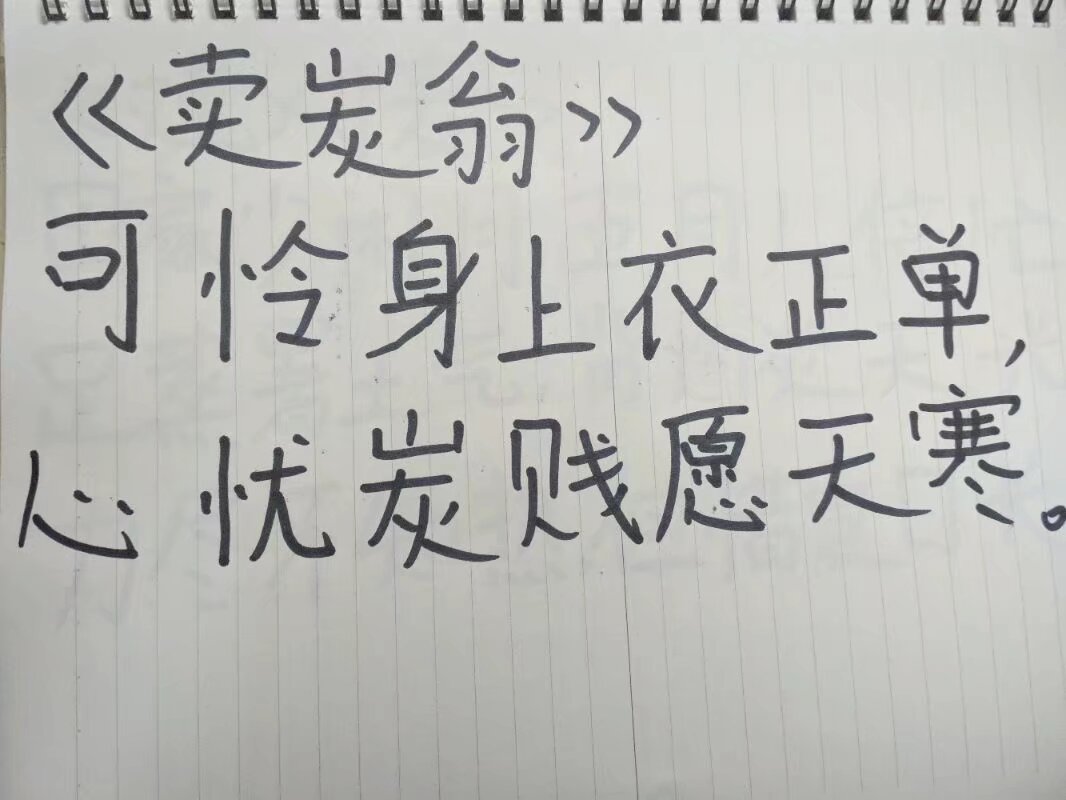 《卖炭翁》
可怜身上衣正单，
心忧炭贱愿天寒。